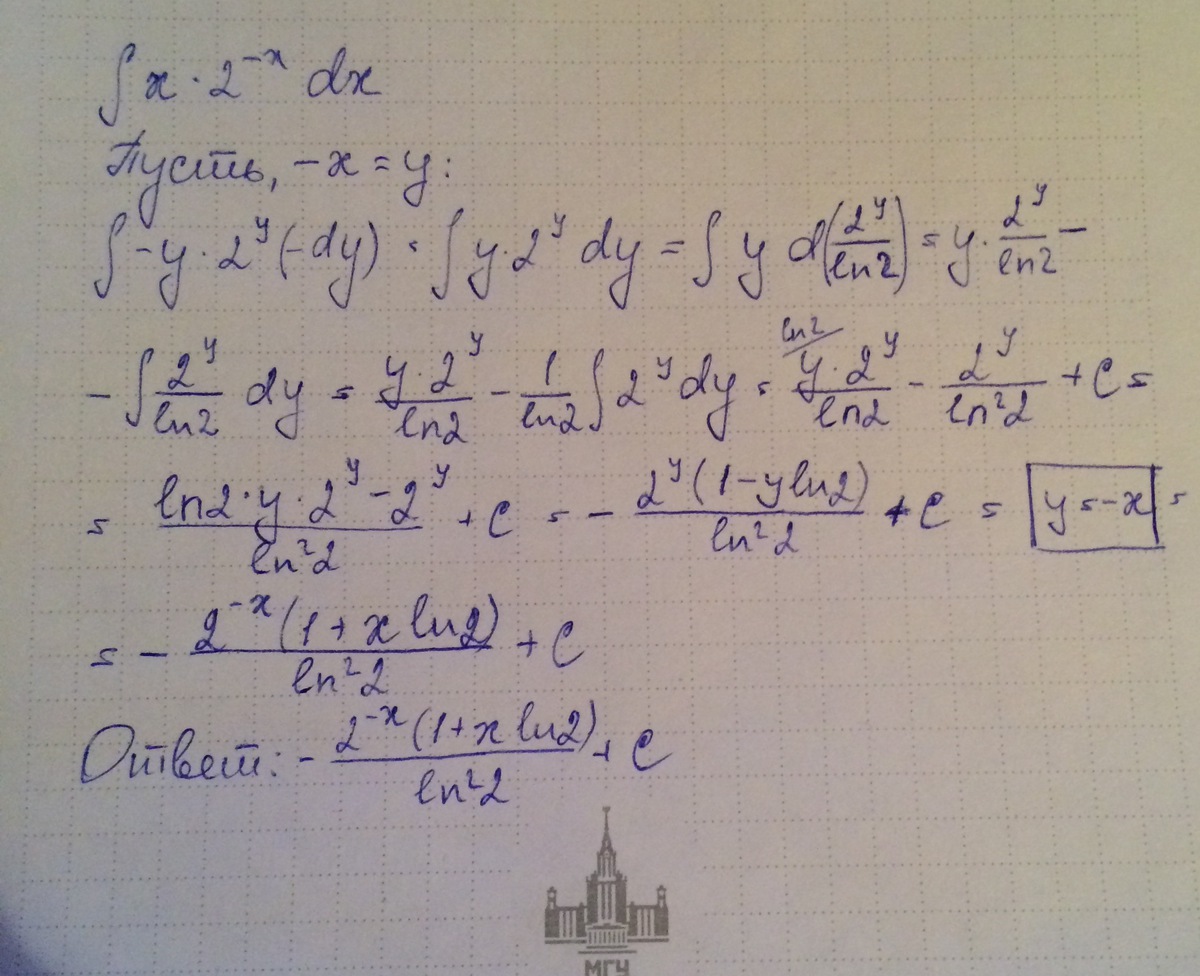 ∫ x · 2^{-x} dx
Пусть, -x = y:
∫ -y · 2^y (-dy) = ∫ y · 2^y dy = ∫ y d(2^y/ln2) = y · 2^y/ln2 -
- ∫ 2^y/ln2 dy = y · 2^y/ln2 - 1/ln2 ∫ 2^y dy = ln2/ y · 2^y/ln2 - 2^y/ln²2 + C =
= (ln2 · y · 2^y - 2^y)/ln²2 + C = - 2^y (1 - y ln2)/ln²2 + C = |y = -x| =
= - 2^{-x} (1 + x ln2)/ln²2 + C
Ответ: - 2^{-x} (1 + x ln2)/ln²2 + C
МГУ